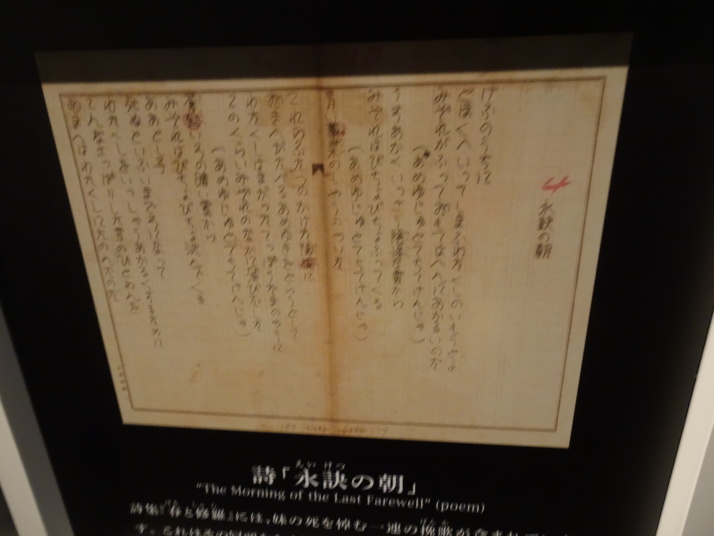 永訣の朝
けふのうちに
とほくへいってしまふわたくしのいもうとよ
みぞれがふっておもてはへんにあかるいのだ
(あめゆじゅとてちてけんじゃ)
うすあかくいっさう陰惨な雲から
みぞれはびちょびちょふってくる
(あめゆじゅとてちてけんじゃ)
青い のもやうのついた
これらふたつのかけた に
おまへがたべるあめゆきをとらうとして
わたくしはまがったてっぽうだまのやうに
このくらいみぞれのなかに飛びだした
(あめゆじゅとてちてけんじゃ)
いろの暗い雲から
みぞれはびちょびちょ沈んでくる
ああとし子
死ぬといふいまごろになって
わたくしをいっしゃうあかるくするために
こんなさっぱりした雪のひとわんを
おまへはわたくしにたのんだのだ
えいけつ
詩「永訣の朝」
"The Morning of the Last Farewell" (poem)
詩集『春と修羅』には、妹の死を悼む一連の挽歌が含まれてい
す。これはその